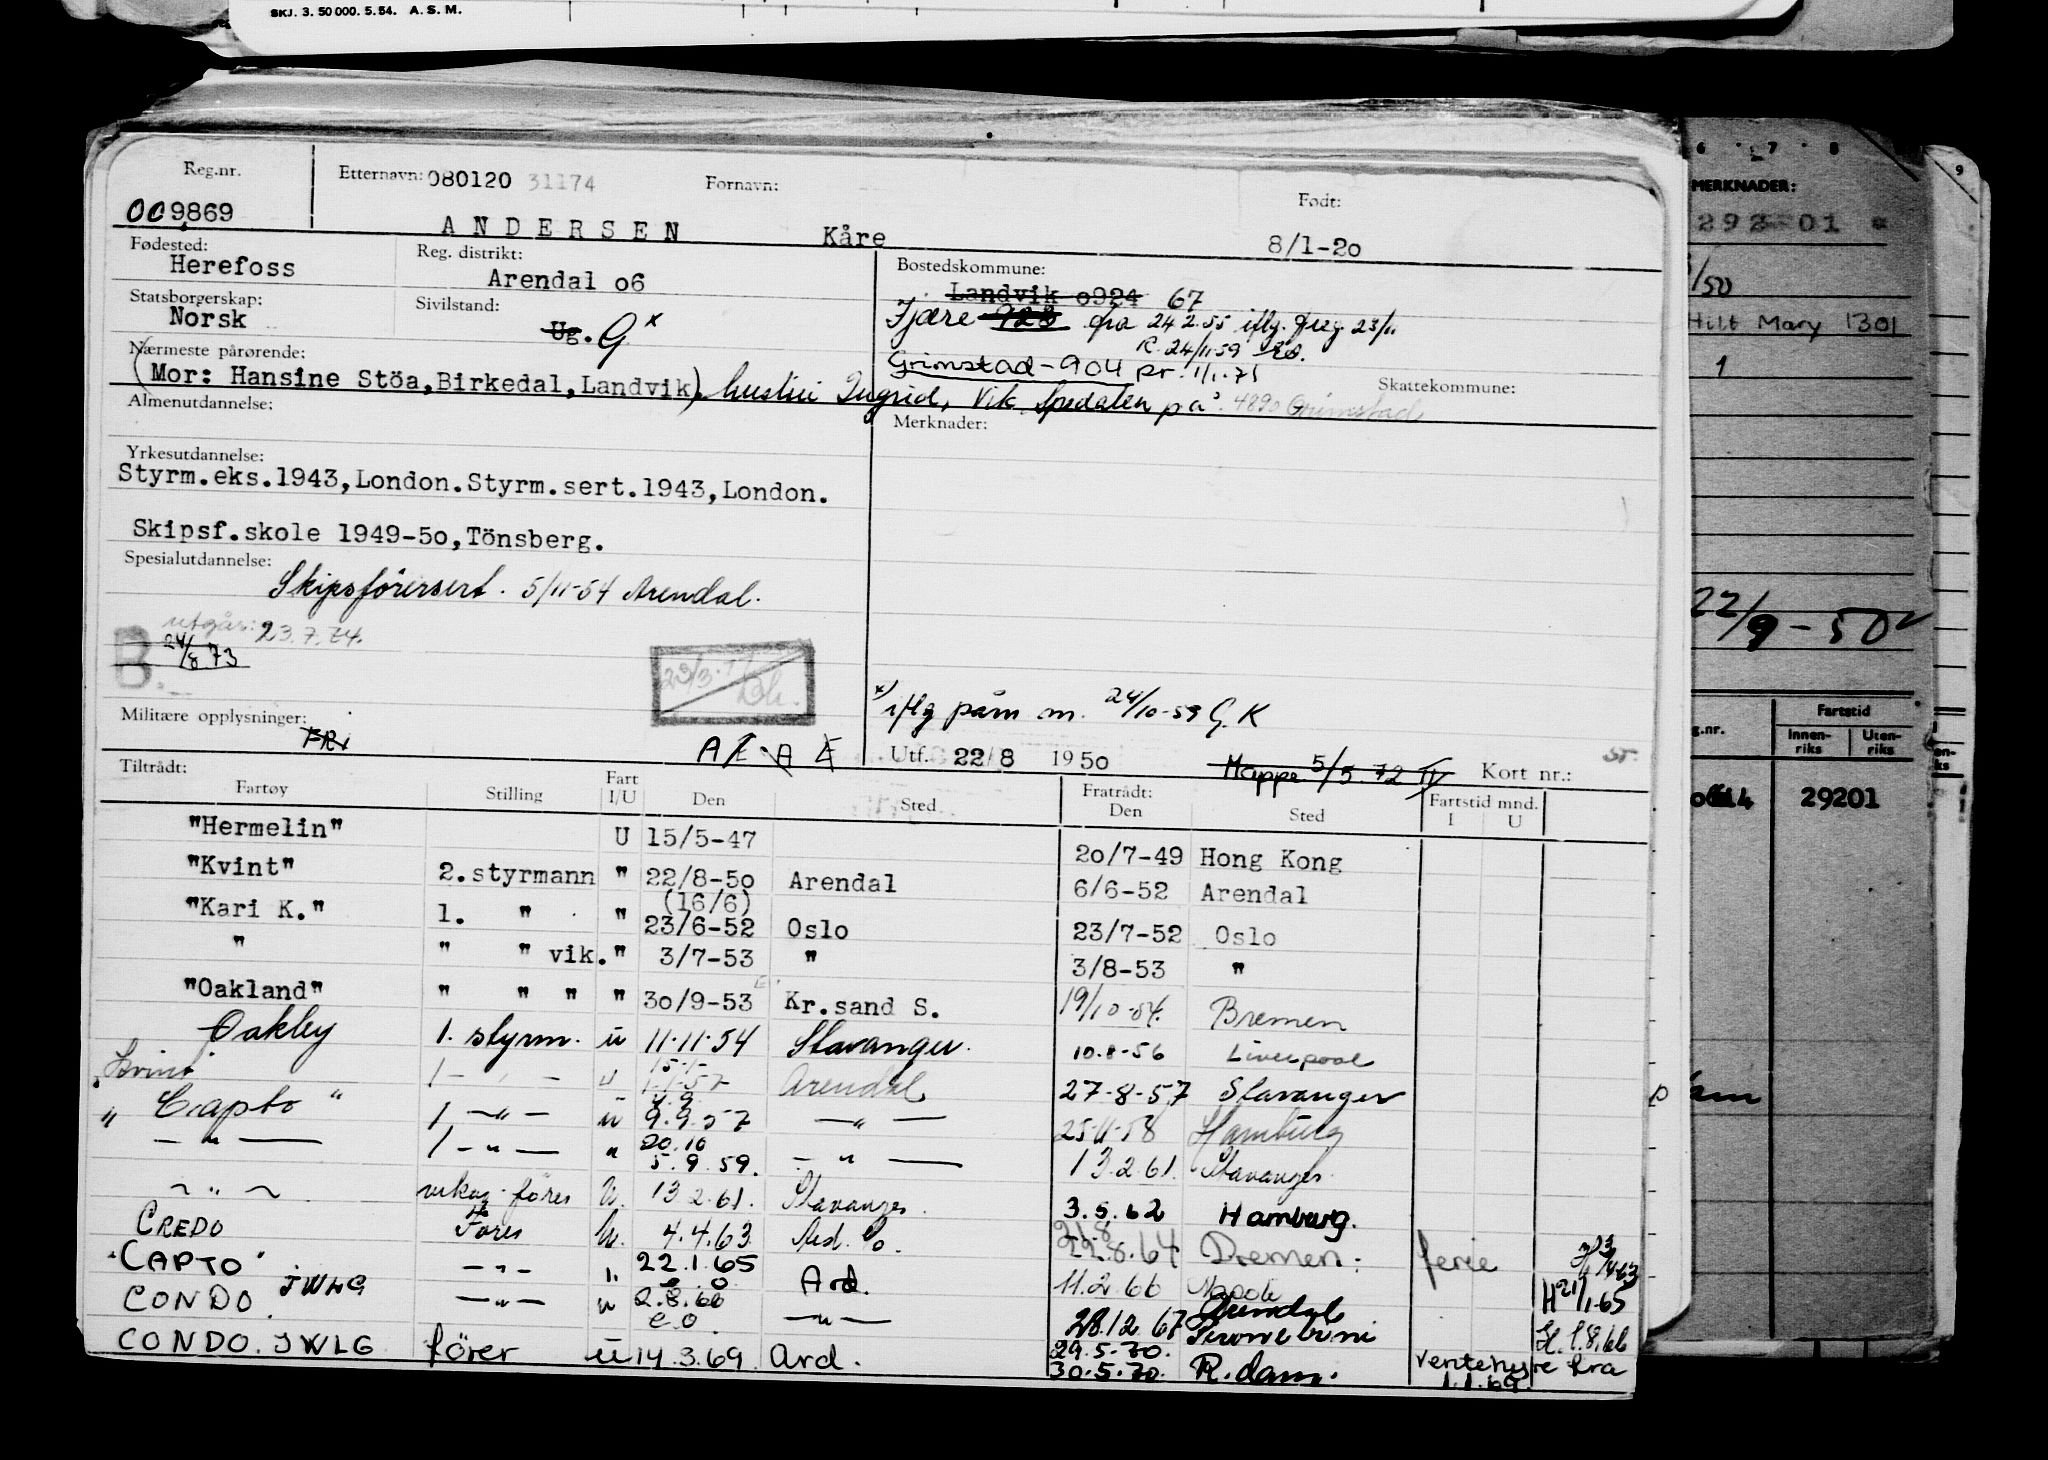 SKJ. 3. 50 000. 5. 54. A. S. M.
Reg.nr. Etternavn: 080120 31174 Fornavn: Født:
009869 ANDERSEN Kåre 8/1-20
Fødested: Reg. distrikt: Bostedskommune:
Herefoss Arendal 06 Landvik 0924 67
Statsborgerskap: Sivilstand: Fjære 923 fra 24 2.55 iflg. freg 23/11
Norsk Ug. G x R. 24/11-59
Nærmeste pårørende: Grimstad - 904 pr. 1/1.71 Skattekommune:
(Mor: Hansine Stöa, Birkedal, Landvik) hustru Ingrid, Vik Spedalen på 4890 Grimstad
Almenutdannelse: Merknader:
Yrkesutdannelse:
Styrm.eks.1943, London. Styrm.sert.1943, London.
Skipsf.skole 1949-50, Tönsberg.
Spesialutdannelse:
Skipsförersert. 5/11-54 Arendal.
utgår: 23.7.74.
B. 24/8 73
29/3
x) iflg påm m. 24/10-59 G.K
Militære opplysninger: Utf. 22/8 1950 Mappe 5/5 72 Kort nr.:
Tiltrådt: Fart Fratrådt: Fartstid mnd.
Fartøy Stilling I/U Den Sted Den Sted I U
"Hermelin" U 15/5-47 20/7-49 Hong Kong
"Kvint" 2.styrmann " 22/8-50 Arendal 6/6-52 Arendal
(16/6)
"Kari K." 1. " " 23/6-52 Oslo 23/7-52 Oslo
" " " vik. " 3/7-53 " 3/8-53 "
"Oakland" " " " " 30/9-53 Kr.sand S. 19/10-54. Bremen
Oakley 1. styrm. u 11.11.54 Stavanger. 10.8-56 Liverpool
15.1-
"Kvint" 1 - " - u 1.1.57 Arendal 27-8-57 Stavanger
" Capto " 1 - " - u 9.9.57 - " - 25-11-58 Hamburg
20.10
- " - 1 - " - " 5.9.59. - " - 13.2.61. Stavanger
- " - vikar förer U. 13 2.61. Stavanger. 3.5.62 Hamburg.
CREDO Förer U. 4.4.63. 22.8.64 Bremen: ferie
"CAPTO" - " - " 22.1.65 Ard. 11.2.66 H 21/1.65
CONDO. JWLG - " - " 2.8.66 - " - 28.12.67 Arendal H. 1.8.66
29.5.70.
CONDO. JWLG förer u 14.3.69. Ard. 30.5.70. R.dam. Ventehyre fra
1.1.69.
6 7 8
9
MERKNADER:
292 01
/50
Hilt Mary 1301
1
22/9-50
g.nr. Fartstid
Innen-riks Uten-riks
29201